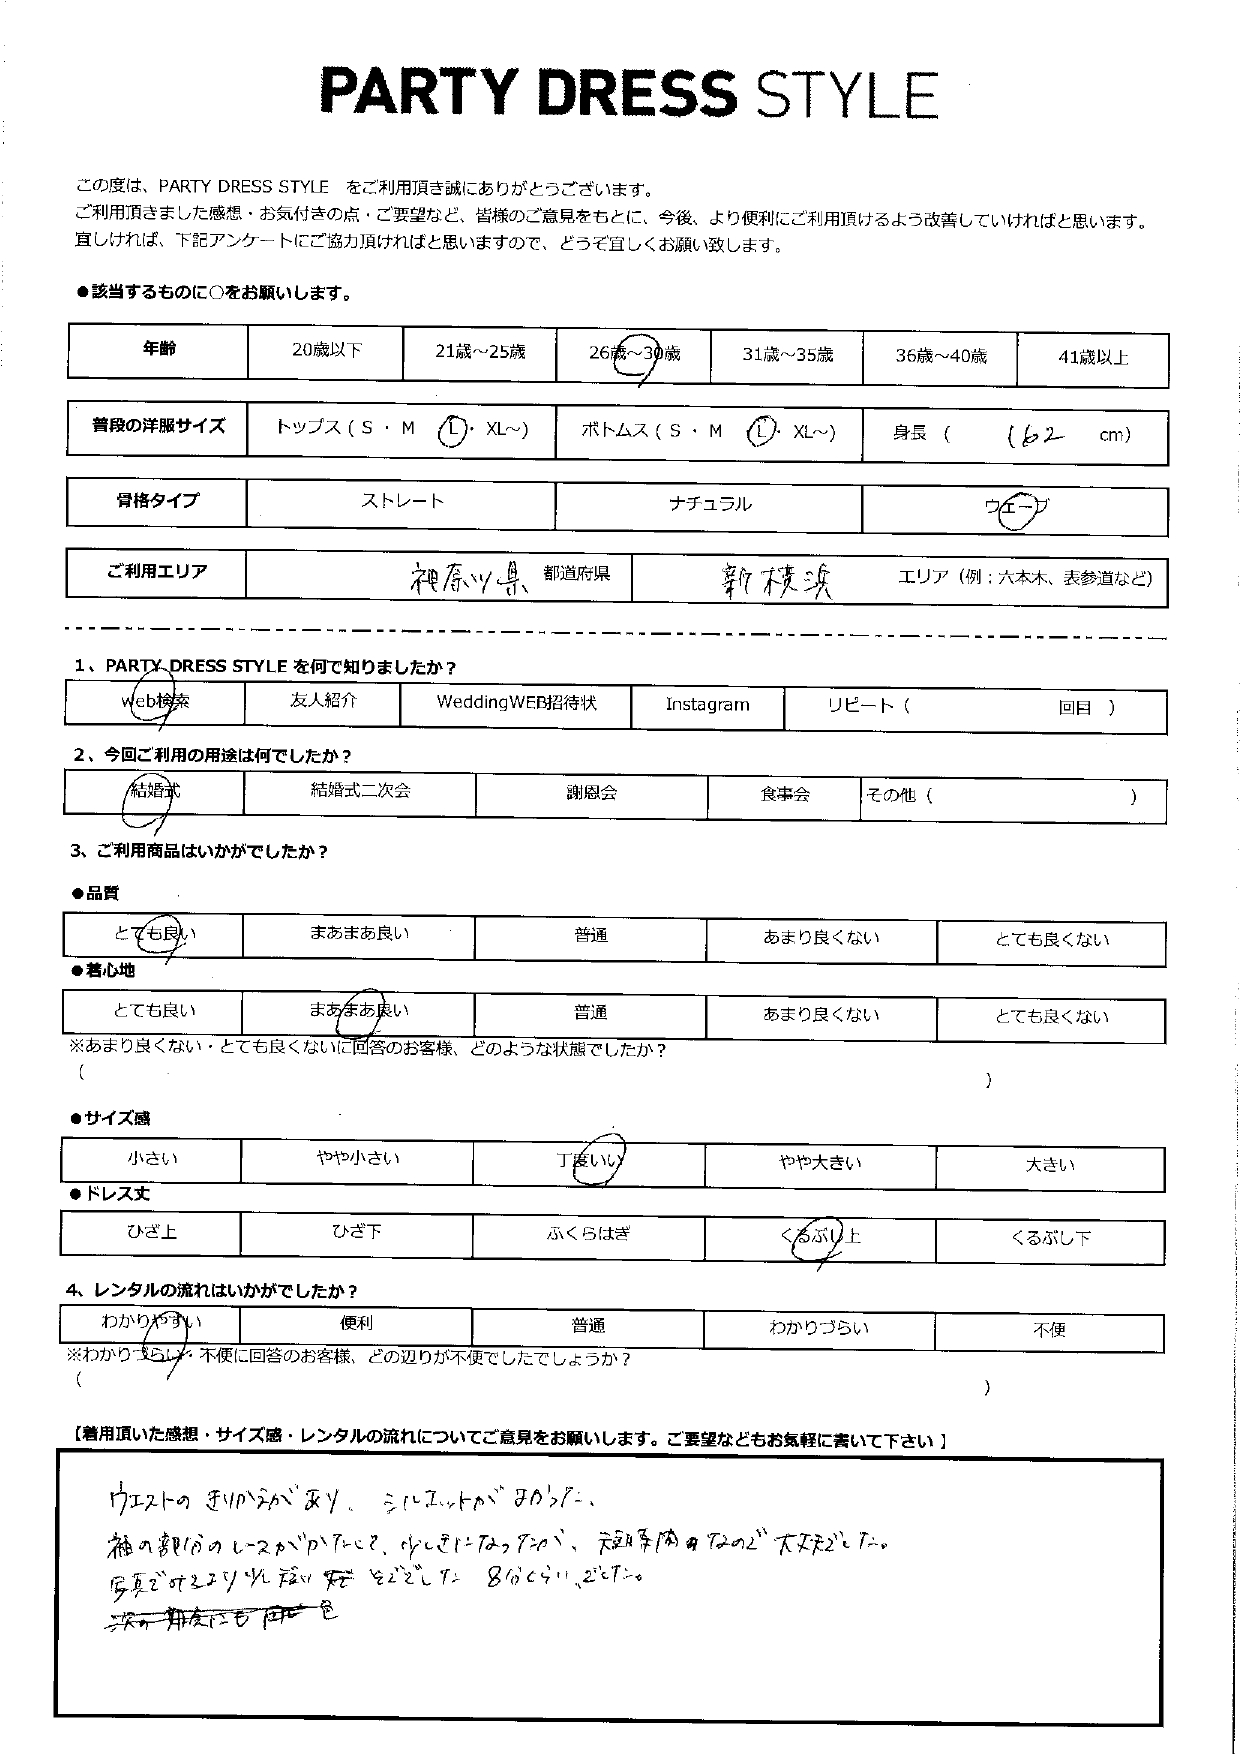 PARTY DRESS STYLE
この度は、PARTY DRESS STYLE をご利用頂き誠にありがとうございます。
ご利用頂きました感想・お気付きの点・ご要望など、皆様のご意見をもとに、今後、より便利にご利用頂けるよう改善していければと思います。
宜しければ、下記アンケートにご協力頂ければと思いますので、どうぞ宜しくお願い致します。
●該当するものに○をお願いします。
年齢 20歳以下 21歳～25歳 26歳～30歳 31歳～35歳 36歳～40歳 41歳以上
普段の洋服サイズ トップス ( S ・ M L ・ XL～) ボトムス ( S ・ M L ・ XL～) 身長 ( 162 cm)
骨格タイプ ストレート ナチュラル ウェーブ
ご利用エリア 神奈川県 都道府県 新横浜 エリア（例：六本木、表参道など）
1、PARTY DRESS STYLE を何で知りましたか？
web検索 友人紹介 WeddingWEB招待状 Instagram リピート ( 回目 )
2、今回ご利用の用途は何でしたか？
結婚式 結婚式二次会 謝恩会 食事会 その他 ( )
3、ご利用商品はいかがでしたか？
●品質
とても良い まあまあ良い 普通 あまり良くない とても良くない
●着心地
とても良い まあまあ良い 普通 あまり良くない とても良くない
※あまり良くない・とても良くないに回答のお客様、どのような状態でしたか？
( )
●サイズ感
小さい やや小さい 丁度いい やや大きい 大きい
●ドレス丈
ひざ上 ひざ下 ふくらはぎ くるぶし上 くるぶし下
4、レンタルの流れはいかがでしたか？
わかりやすい 便利 普通 わかりづらい 不便
※わかりづらい・不便に回答のお客様、どの辺りが不便でしたでしょうか？
( )
【着用頂いた感想・サイズ感・レンタルの流れについてご意見をお願いします。ご要望などもお気軽に書いて下さい 】
ウエストの きりかえが あり、シルエットが よかった、
袖の部分の レースが かたくて、少し気になったが、短時間 なので 大丈夫でした。
写真で みるより 少し 短い そででした 8分くらいでした。